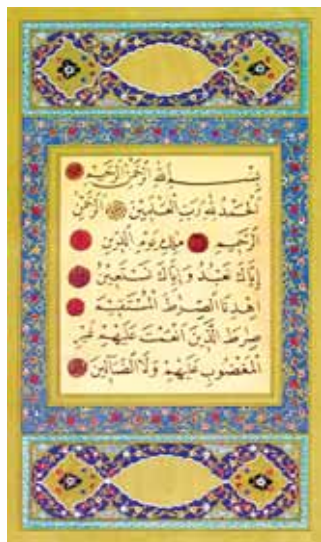 بِسْــــمِ اللهِ الرَّحْمٰنِ الرَّحِيمِ
اَلْحَمْدُ لِلّٰهِ رَبِّ الْعَالَمِينَ الرَّحْمٰنِ
الرَّحِيمِ مَالِكِ يَوْمِ الدِّينِ
اِيَّاكَ نَعْبُدُ وَاِيَّاكَ نَسْتَعِينُ
اِهْدِنَا الصِّرَاطَ الْمُسْتَقِيمَ
صِرَاطَ الَّذِينَ اَنْعَمْتَ عَلَيْهِمْ غَيْرِ
الْمَغْضُوبِ عَلَيْهِمْ وَلَا الضَّالِّينَ